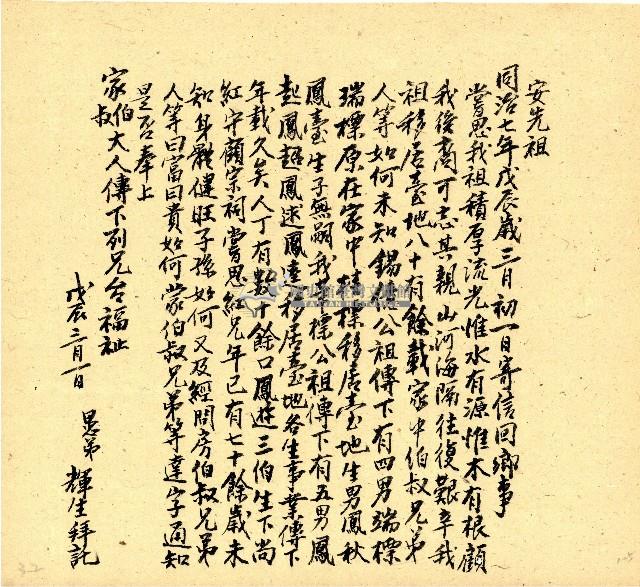 安先祖
同治七年戊辰歲三月初一日寄信回鄉事
嘗思我祖積厚流光惟水有源惟木有根顧
我後裔可忘其親山河海隔往復艱辛我
祖移居臺地八十有餘載家中伯叔兄弟
人等如何未知錫 公祖傳下有四男端標
瑞標原在家中 標移居臺地生男鳳秋
鳳臺生子無嗣我 標公祖傳下有五男鳳
起鳳超鳳逑鳳達移居臺地各生事業傳下
年載久矣人丁有數十餘口鳳遊三伯生下尚
紅守顧宗祠嘗思經兄年已有七十餘歲未
知身體健旺子孫如何又及經問房伯叔兄弟
人等曰富曰貴如何蒙伯叔兄弟等達字通知
是否奉上
家伯叔大人傳下列兄台福祉
戊辰三月一日
愚弟 輝生拜託